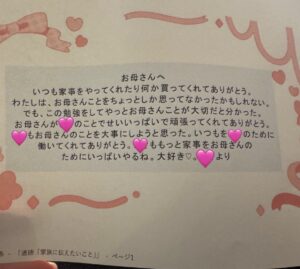 お母さんへ
いつも家事をやってくれたり何か買ってくれてありがとう。
わたしは、お母さんことをちょっとしか思ってなかったかもしれない。
でも、この勉強をしてやっとお母さんことが大切だと分かった。
お母さんが🩷のことでせいいっぱいで頑張ってくれてありがとう。
🩷もお母さんのことを大事にしようと思った。いつもを🩷のために
働いてくれてありがとう。🩷ももっと家事をお母さんの
ためにいっぱいやるね。大好き♡。🩷より
「家族に伝えたいこと」」 - ページ1